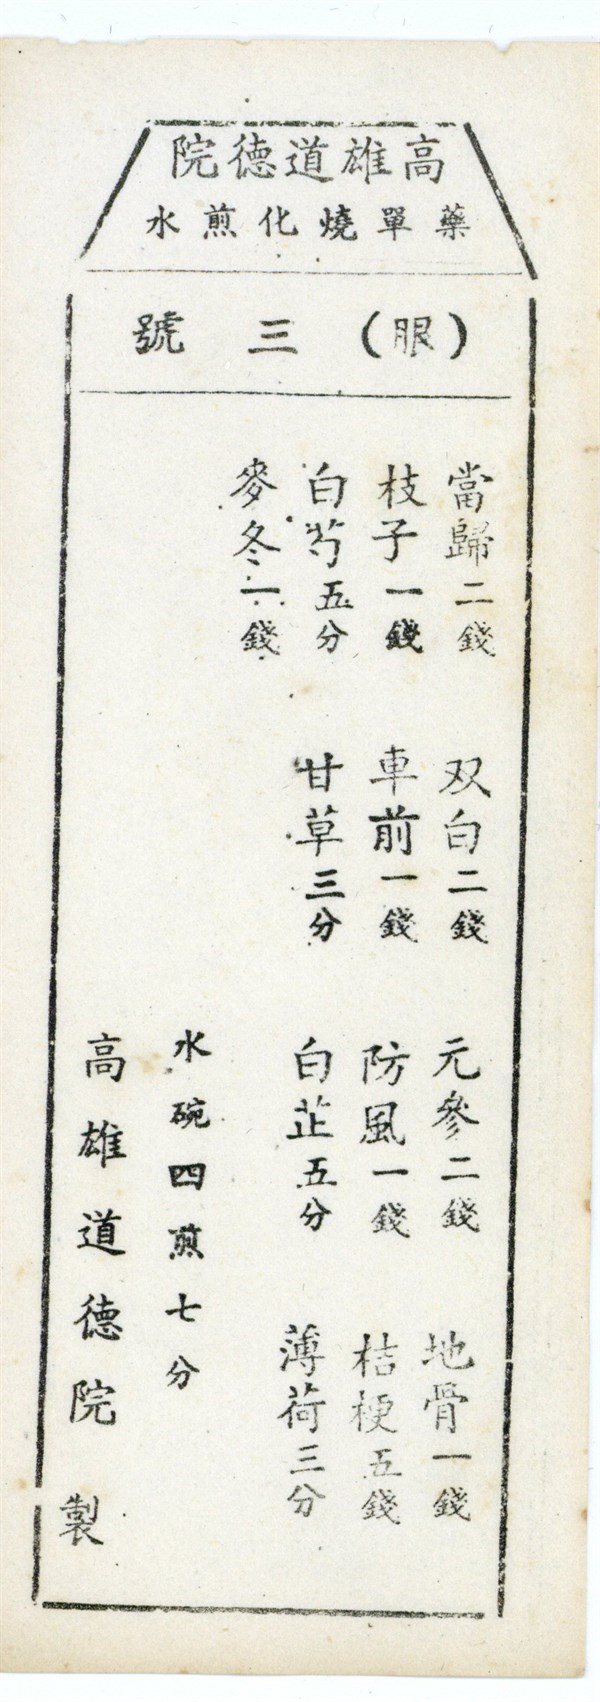 高雄道德院
藥單燒化煎水
（眼）三號
當歸二錢　双白二錢　元參二錢　地骨一錢
枝子一錢　車前一錢　防風一錢　桔梗五錢
白芍五分　甘草三分　白芷五分　薄荷三分
麥冬一錢
水碗四煎七分
高雄道德院　製